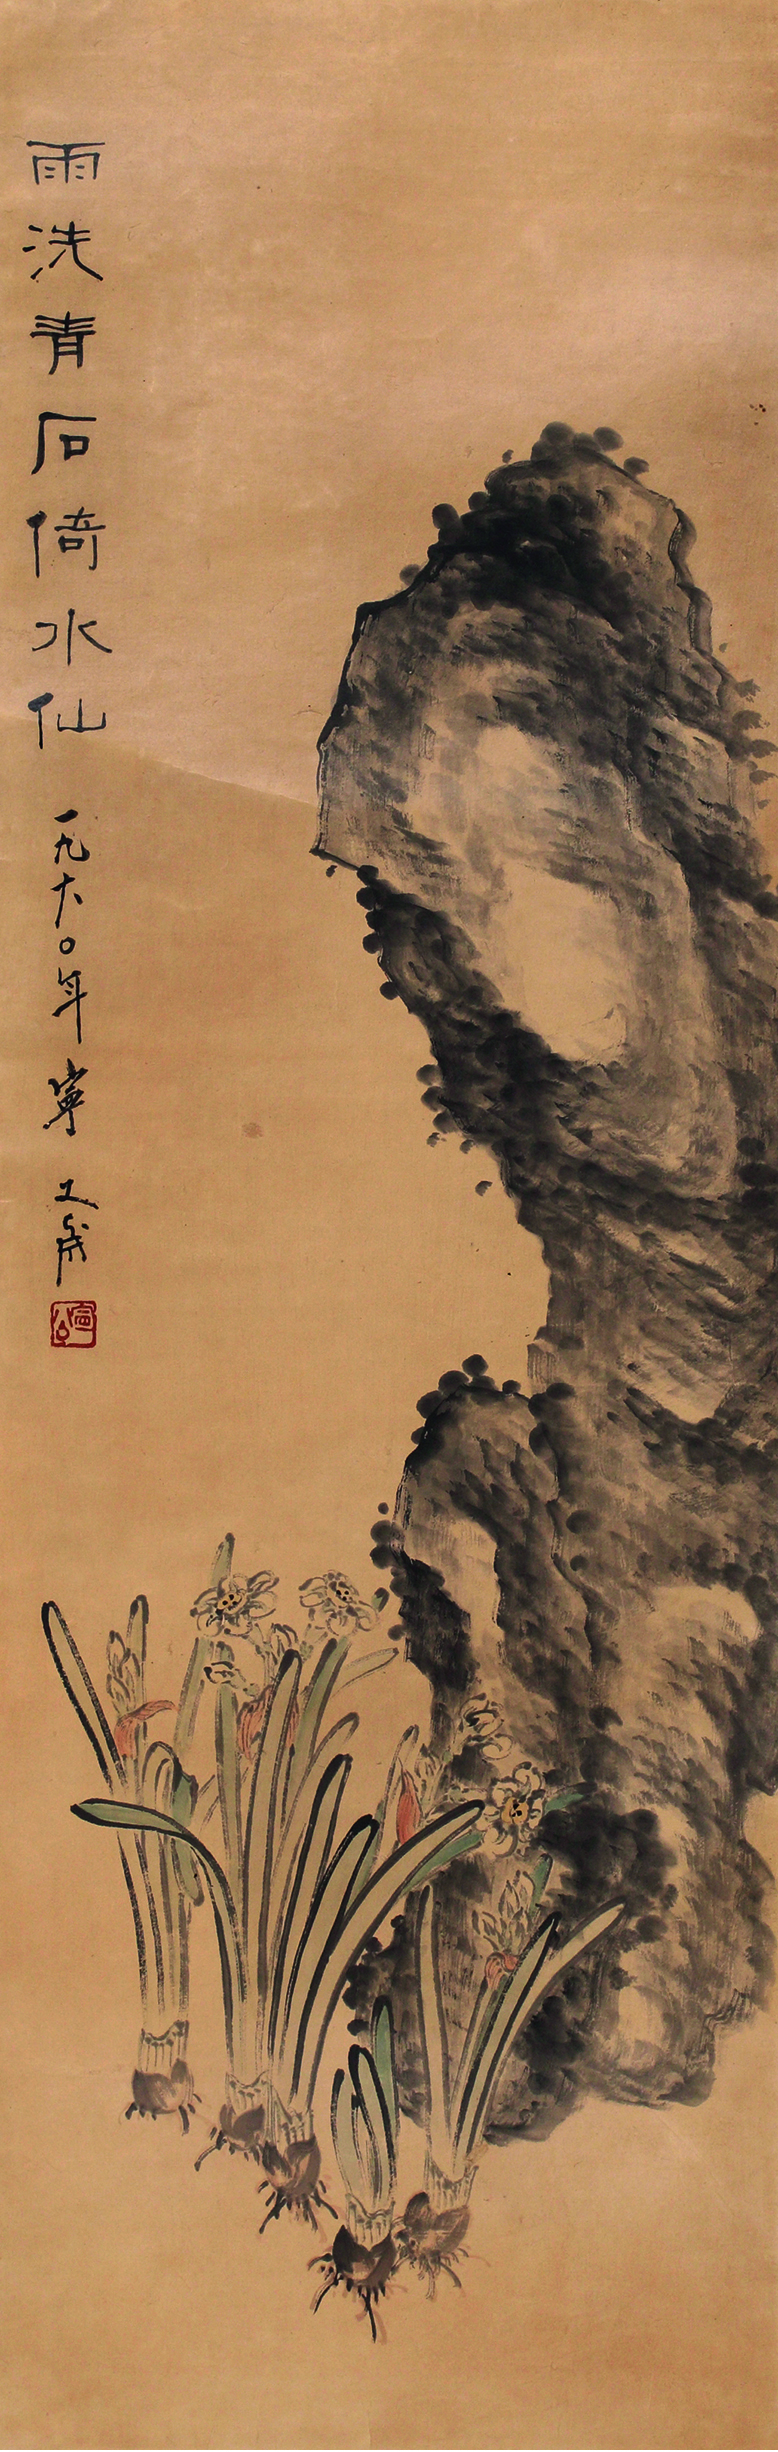 雨洗青石倚水仙 一九六〇年 寧
寧公